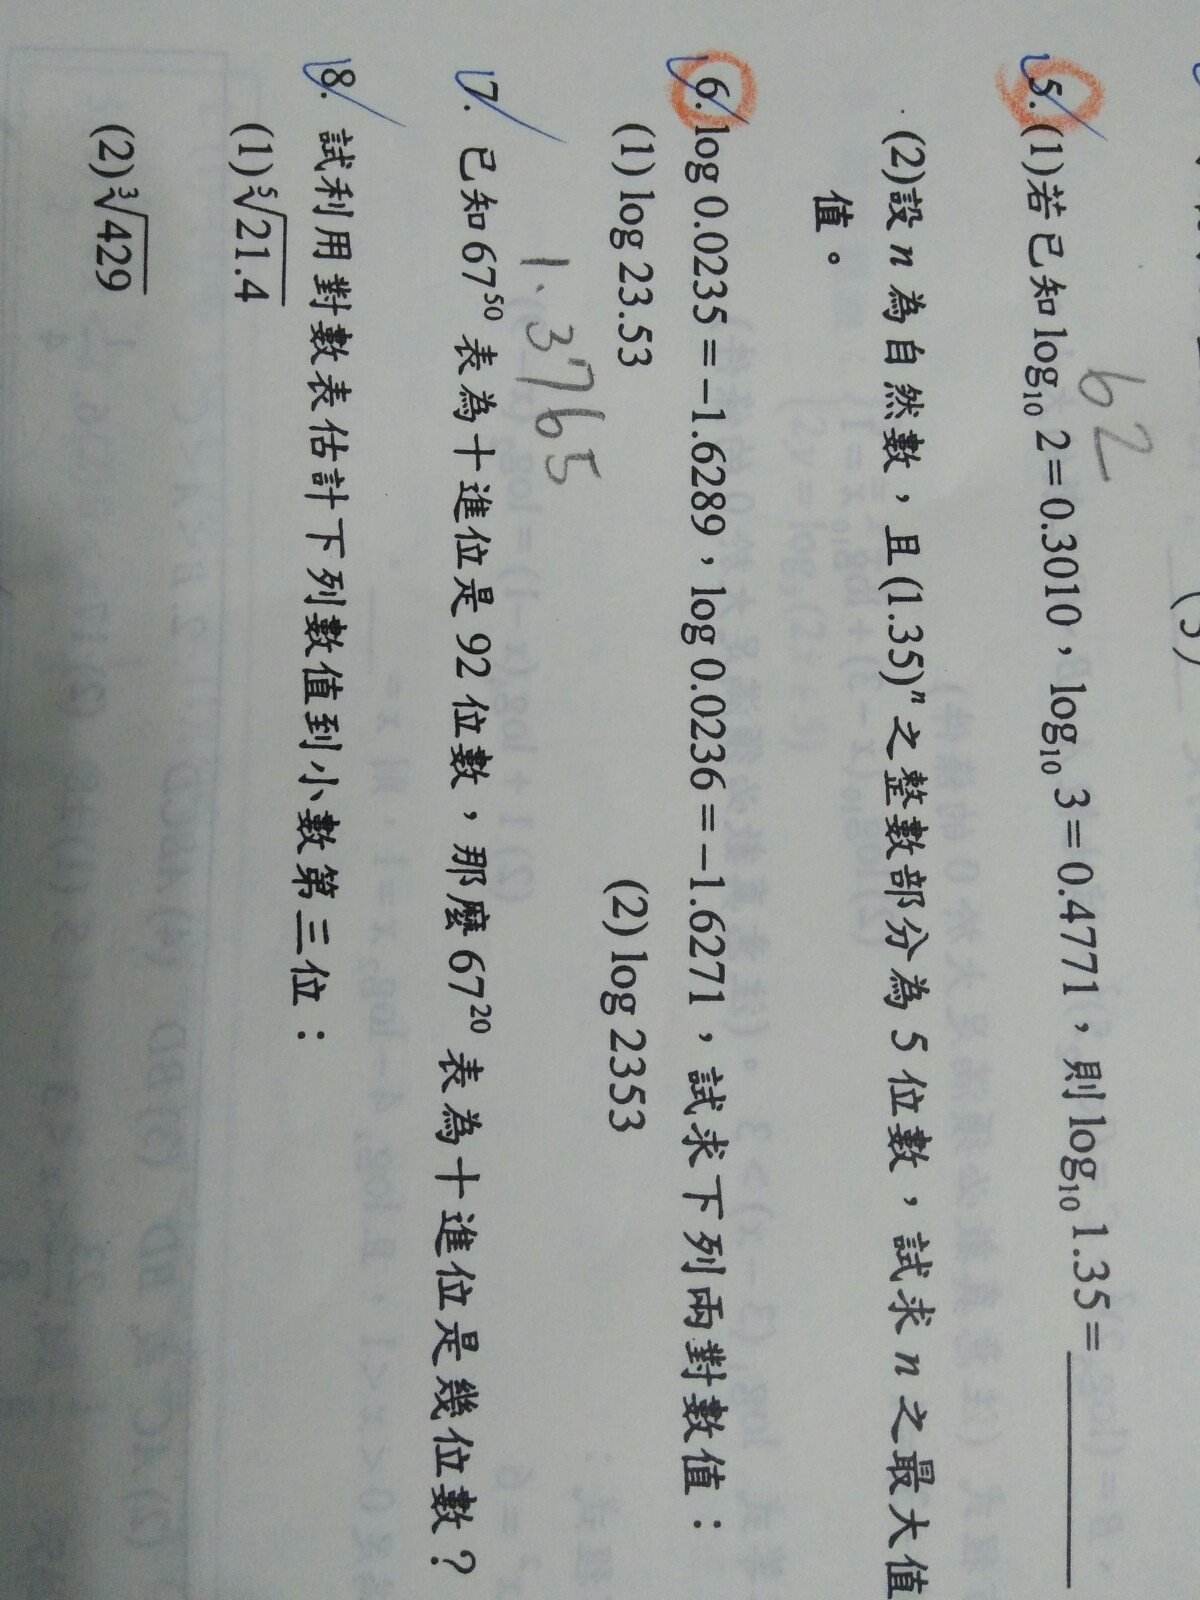 (3)
62
5. (1)若已知log₁₀ 2=0.3010，log₁₀ 3=0.4771，則log₁₀ 1.35=________
(2)設n為自然數，且(1.35)ⁿ之整數部分為5位數，試求n之最大值
值。
6. log 0.0235=−1.6289，log 0.0236=−1.6271，試求下列兩對數值：
(1) log 23.53 (2) log 2353
1.3765
7. 已知67⁵⁰表為十進位是92位數，那麼67²⁰表為十進位是幾位數？
8. 試利用對數表估計下列數值到小數第三位：
(1) ⁵√21.4
(2) ³√429